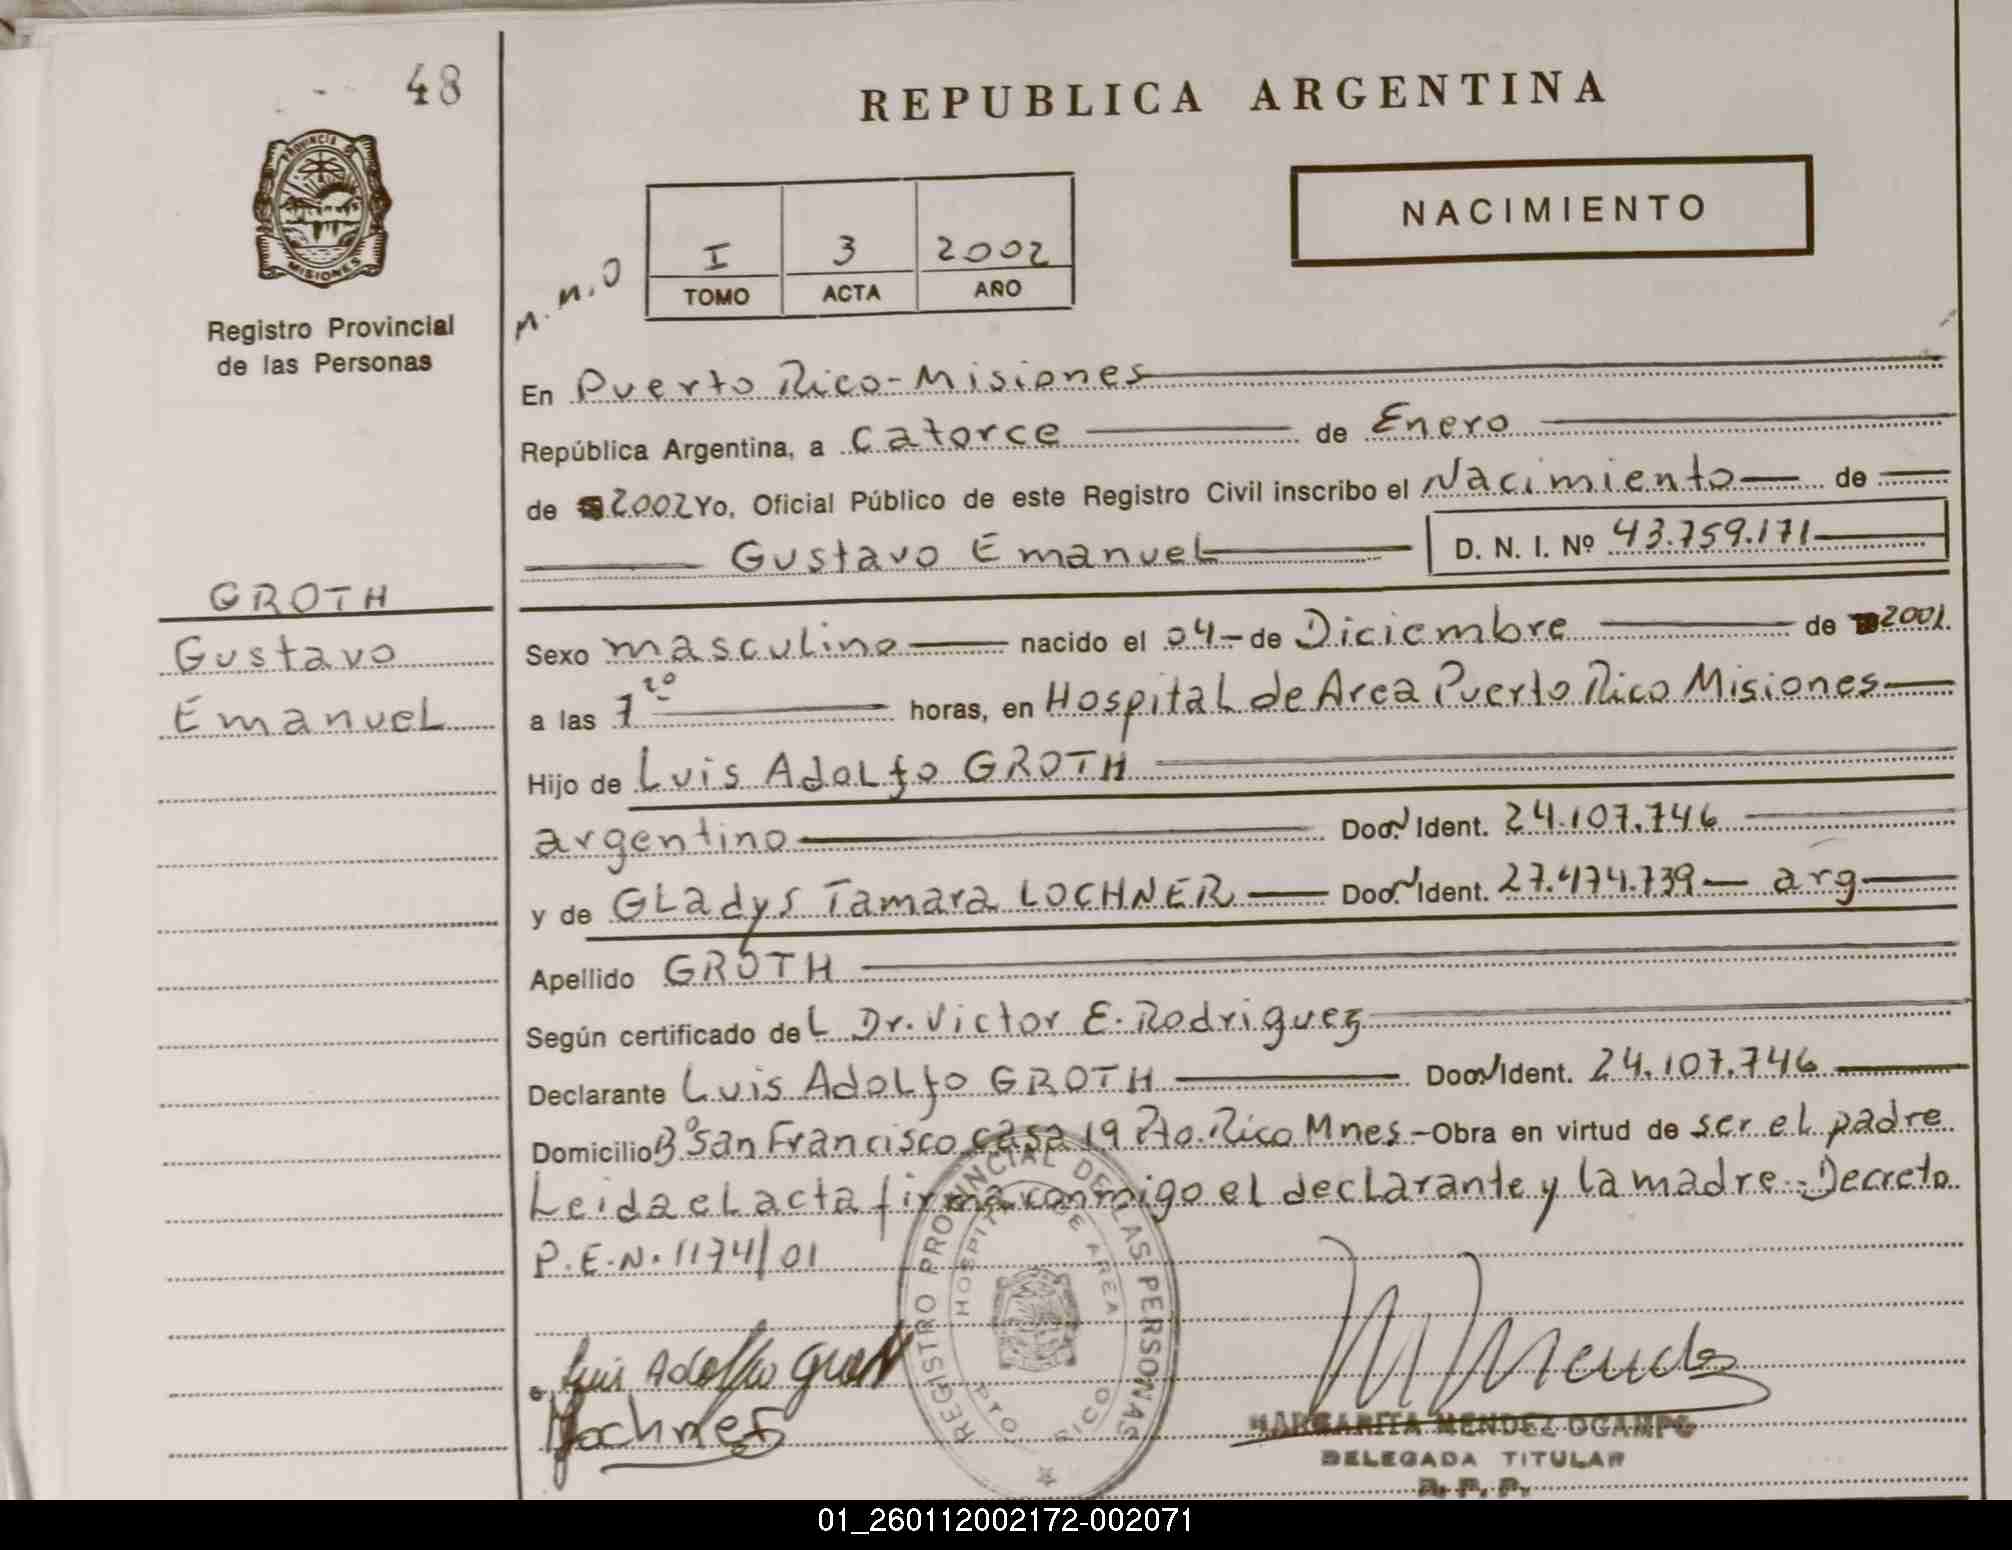 48
REPUBLICA ARGENTINA
PROVINCIA DE
MISIONES
Registro Provincial
de las Personas
NACIMIENTO
m.n.o
I 3 2002
TOMO ACTA AÑO
En Puerto Rico-Misiones
República Argentina, a catorce de Enero
de 2002 Yo, Oficial Público de este Registro Civil inscribo el Nacimiento de
Gustavo Emanuel D. N. I. Nº 43.759.171
GROTH
Gustavo
Emanuel
Sexo masculino nacido el 04- de Diciembre de 2001
a las 7 20 horas, en Hospital de Area Puerto Rico Misiones
Hijo de Luis Adolfo GROTH
argentino Ident. 24.107.746
y de Gladys Tamara LOCHNER Ident. 27.474.739 arg
Apellido GROTH
Según certificado del Dr. Victor E. Rodriguez
Declarante Luis Adolfo GROTH Ident. 24.107.746
Domicilio Bº San Francisco casa 19 Pto. Rico Mnes.- Obra en virtud de ser el padre
Leida el acta firma conmigo el declarante y la madre.- Decreto
P.E.N. 1174/01
REGISTRO PROVINCIAL DE LAS PERSONAS
HOSPITAL DE AREA
PTO RICO
Luis Adolfo Groth
Lochner
M Mendez
MARGARITA MENDEZ OCAMPO
DELEGADA TITULAR
R. P. P.
01_260112002172-002071